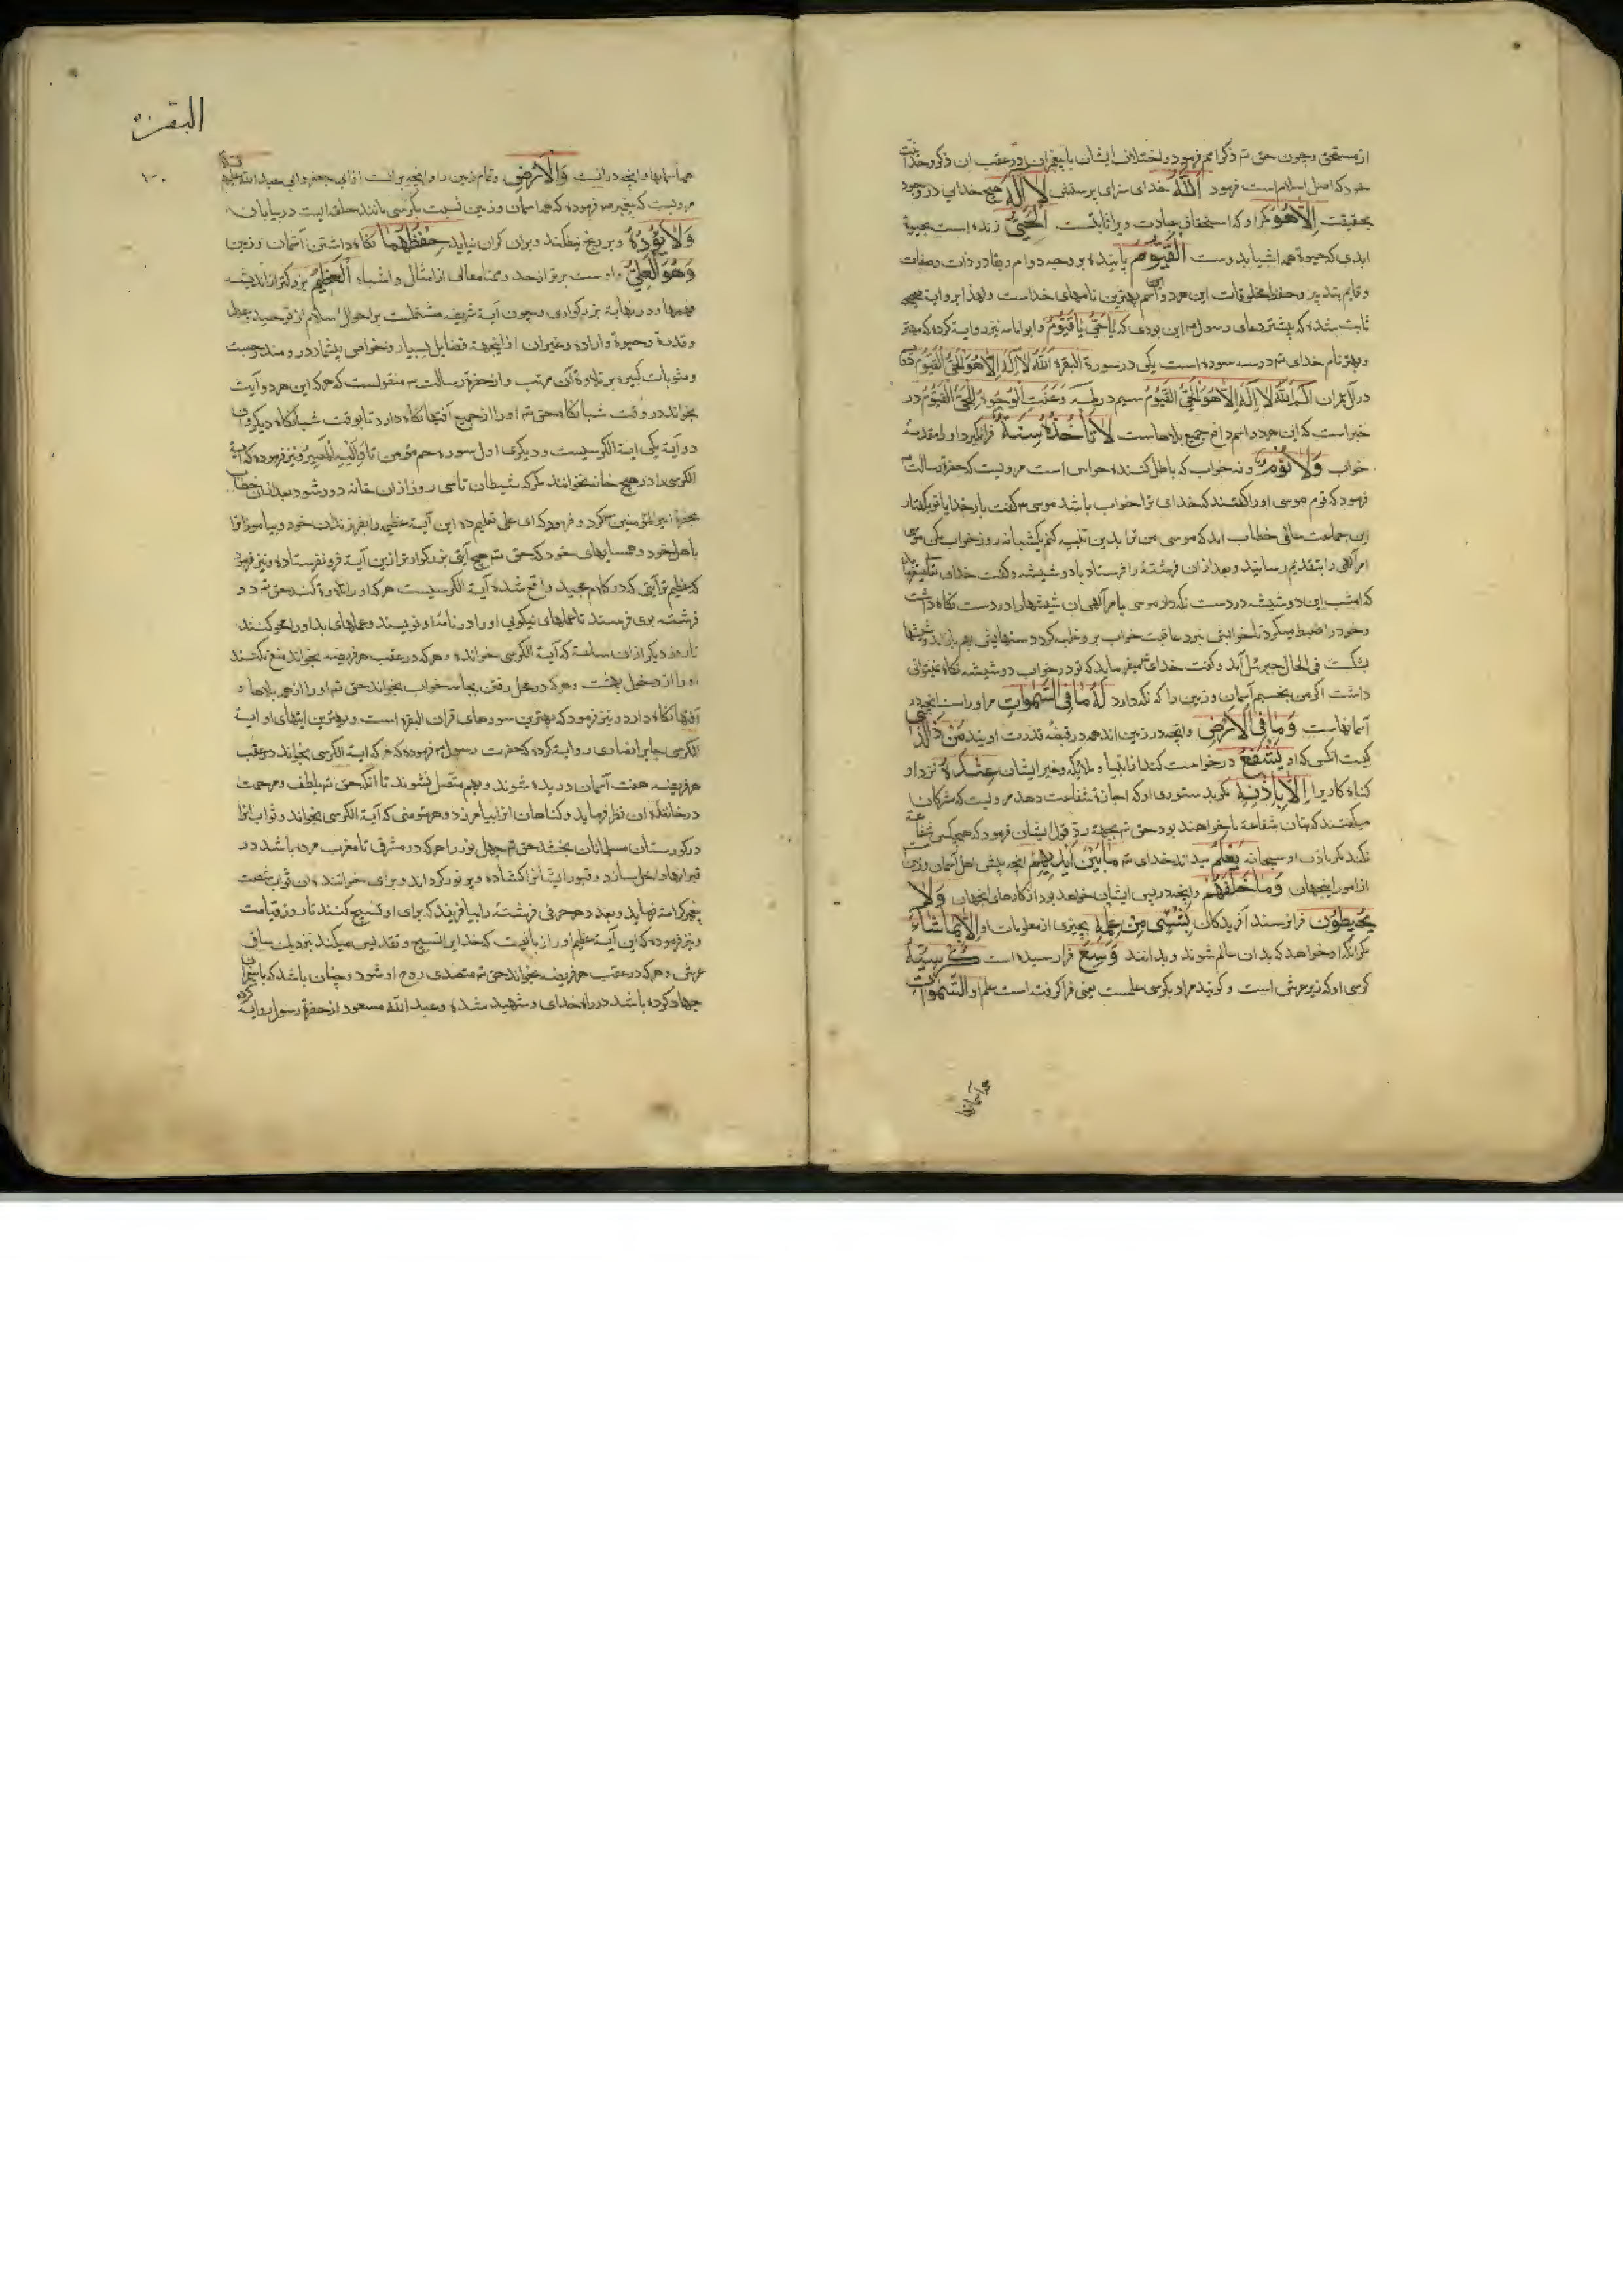 از مستحق و چون حق تم ذکر امم فرمود و اختلاف ایشان با پیغمبران در عقب ان ذکر وحدانیت
خود که اصل اسلام است فرمود اَللّٰهُ خدای سزای پرستش لَا اِلٰهَ هیچ خدای در وجود
بحقیقت اِلَّا هُوَ مکر او که استحقاق عبادت ویرا ثابتست اَلْحَیُّ زنده است بحیوة
ابدی که حیوة همه اشیا بدوست اَلْقَیُّومُ پاینده بر وجه دوام و بقا در ذات و صفات
و قایم بتدبیر و حفظ مخلوقات این هر دو اسم بهترین نامهای خداست ولهذا بروایة صحیحه
ثابت شده که بیشتر دعای رسول ص این بودی که یَا حَیُّ یَا قَیُّومُ و ابو امامه نیز روایة کرده که مهتر
و بهتر نام خدای تم در سه سوره است یکی در سورة البقره اَللّٰهُ لَا اِلٰهَ اِلَّا هُوَ الْحَیُّ الْقَیُّومُ دوم
در آل عمران الٓمٓ اَللّٰهُ لَا اِلٰهَ اِلَّا هُوَ الْحَیُّ الْقَیُّومُ سیم در طه وَعَنَتِ الْوُجُوهُ لِلْحَیِّ الْقَیُّومِ در
خبر است که این هر دو اسم دافع جمیع بلاهاست لَا تَأْخُذُهُ سِنَةٌ فرانکیرد او را مقدمه
خواب وَلَا نَوْمٌ و نه خواب که باطل کننده حواس است مرویست که حضرة رسالت ص
فرمود که قوم موسی او را کفتند که خدای ترا خواب باشد موسی ع کفت بار خدایا تو بکفتار
این جماعت خطاب امد که موسی من ترا بدین تنبیه کنم یکشبانه روز خواب مکن موسی
امر الهی را بتقدیم رسانید و بعد از ان فرشتهٔ را فرستاد با دو شیشه و کفت خدای میفرماید
که امشب این دو شیشه در دست نکه دار موسی بامر الهی ان شیشها را در دست نکاه داشت
و خود را ضبط میکرد تا خوابش نبرد عاقبت خواب برو غلبه کرد دستهایش بهم باز اند و شیشها
بشکست فی الحال جبرئیل آمد و کفت خدای تم میفرماید که تو در خواب دو شیشه نکاه نمیتوانی
داشت اکر من بخسبم آسمان و زمین را که نکه دارد لَهُ مَا فِی السَّمٰوَاتِ مر او راست انچه در
آسمانهاست وَمَا فِی الْاَرْضِ و انچه در زمین اند همه در قبضهٔ قدرت اویند مَنْ ذَا الَّذِی
کیست انکس که او یَشْفَعُ درخواست کند از انبیا و ملایکه و غیر ایشان عِنْدَهُ نزد او
کناه کاریرا اِلَّا بِاِذْنِهِ مکر بدستوری او که اجازة شفاعت دهد مرویست که مشرکان
میکفتند که بتان شفاعة ما خواهند بود حق تم بجهة رد قول ایشان فرمود که هیچکس شفاعة
نکند مکر باذن او سبحانه یَعْلَمُ میداند خدای تم مَا بَیْنَ اَیْدِیهِمْ انچه پیش اهل آسمان و زمین
از امور اینجهان وَمَا خَلْفَهُمْ و انچه در پس ایشان خواهد بود از کارهای انجهان وَلَا
یُحِیطُونَ فرا نرسند آفریدکان بِشَیْءٍ مِنْ عِلْمِهِ بچیزی از معلومات او اِلَّا بِمَا شَاءَ
مکر انکه او خواهد که بدان عالم شوند و بدانند وَسِعَ فرا رسیده است کُرْسِیُّهُ
کرسی او که زیر عرش است و کویند مراد بکرسی علمست یعنی فرا کرفته است علم او السَّمٰوَاتِ
همه آسمانها
البقره
همه آسمانها و انچه در انست وَالْاَرْضَ و تمام زمین را و انچه بر انست از ابی جعفر و ابی عبد الله
مرویست که پیغمبر ص فرموده که همه اسمان و زمین نسبت بکرسی مانند حلقه ایست در بیابان
وَلَا یَؤُدُهُ و بر رنج نیفکند و بران کران نیاید حِفْظُهُمَا نکاه داشتن آسمان و زمین
وَهُوَ الْعَلِیُّ و اوست برتر از حد و متعالی از امثال و اشباه اَلْعَظِیمُ بزرکتر از اندیشه
فهمها و در نهایة بزرکواری و چون آیة شریفه مشتملست بر احوال اسلام از توحید و عدل
و قدرة و حیوة و اراده و غیر ان از اینجهة فضایل بسیار و خواص بیشمار در و مندرجست
و مثوبات کبیره بر تلاوة آن مرتب و از حضرة رسالت ص منقولست که هر که این هر دو آیت
بخواند در وقت شبانکاه حق تم او را از جمیع آفتها نکاه دارد تا بوقت شبانکاه دیکر و ان
دو آیة یکی ایة الکرسیست و دیکری اول سوره حم مؤمن تا وَاِلَیْهِ الْمَصِیرُ و نیز فرموده که آیة
الکرسی را در هیچ خانه نخوانند مکر که شیطان تا سی روز از ان خانه دور شود بعد از ان خطاب
بحضرة امیر المؤمنین ع کرد و فرمود که ای علی تعلیم ده این آیة عظیمه را بفرزندان خود و بیاموز انرا
باهل خود و همسایهای خود که حق تم هیچ آیتی بزرکوارتر ازین آیة فرو نفرستاده و نیز فرمود
که عظیم تر آیتی که در کلام مجید واقع شده آیة الکرسیست هر که او را تلاوة کند حق تم دو
فرشته بوی فرستد تا عملهای نیکویی او را در نامهٔ او نویسند و عملهای بد او را محو کنند
تا روز دیکر از ان ساعة که آیة الکرسی خوانده و هر که در عقب هر فریضه بخواند منع نکنند
او را از دخول بهشت و هر که در محل رفتن بجامه خواب بخواند حق تم او را از همه بلاها و
آفتها نکاه دارد و نیز فرمود که بهترین سورهای قران البقره است و بهترین ایتهای او ایة
الکرسی جابر انصاری روایة کرده که حضرت رسول ص فرموده که هر که ایة الکرسی بخواند در عقب
هر فریضه هفت آسمان دریده شوند و بهم متصل نشوند تا انکه حق تم بلطف و مرحمت
در خوانندهٔ ان نظر فرماید و کناهان انرا بیامرزد و هر مؤمنی که آیة الکرسی بخواند و ثواب انرا
در کورستان مسلمانان بخشد حق تم چهل نور را هر که در مشرق تا مغرب مرده باشد در
قبر انها داخل سازد و قبور ایشانرا کشاده و پر نور کرداند و برای خواننده ان ثواب شصت
پیغمبر کرامت فرماید و بعدد هر حرفی فرشتهٔ را بیافریند که برای او تسبیح کنند تا روز قیامت
و نیز فرموده که این آیة عظیم او را زبانیست که خدایرا تسبیح و تقدیس میکند نزدیک ساق
عرش و هر که در عقب هر فریضه بخواند حق تم متصدی روح او شود و چنان باشد که با پیغمبران
جهاد کرده باشد در راه خدای و شهید شده و عبد الله مسعود از حضرة رسول روایة کرده